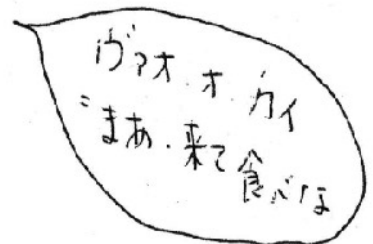 ヴァオ オ カイ
"まあ.来て食べな